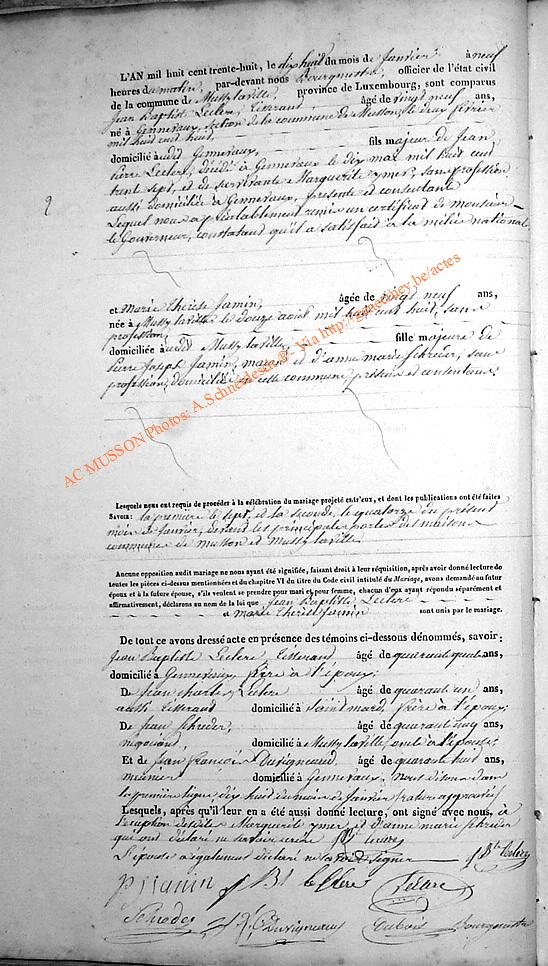 L'AN mil huit cent trente-huit, le dix huit du mois de Janvier à neuf
heures du matin, par-devant nous Bourgmestre, officier de l'état civil
de la commune de Mussy laville, province de Luxembourg, sont comparus
Jean Baptiste Leclere, tisserand, âgé de vingt neuf ans,
né à Gennevaux, section de la commune de Musson, le deux février
mil huit cent huit
domicilié audit Gennevaux, fils majeur de Jean
Pierre Leclere, décédé à Gennevaux le dix mai mil huit cent
trent sept, et de Marguerite ymer, sans profession,
aussi domiciliée à Gennevaux, présente et consentante
Lequel nous a préalablement remis un certificat de monsieur
le Gouverneur, constatant qu'il a satisfait à la milice nationale
2
et Marie Therese Jamin, âgée de vingt neuf ans,
née à Mussy laville le douze août mil huit cent huit, sans
profession,
domiciliée audit Mussy laville fille majeure de
Pierre Joseph Jamin, et d'anne marie Schreder, sans
profession, domiciliés en cette commune, présens et consentans.
Lesquels nous ont requis de procéder à la célébration du mariage projeté entr'eux, et dont les publications ont été faites
Savoir: la première le sept, et la seconde, le quatorze du présent
mois de Janvier, devant les principales portes des maisons
communes de Musson et Mussy laville
Aucune opposition audit mariage ne nous ayant été signifiée, faisant droit à leur réquisition, après avoir donné lecture de
toutes les pièces ci-dessus mentionnées et du chapitre VI du titre du Code civil intitulé du Mariage, avons demandé au futur
époux et à la future épouse, s'ils veulent se prendre pour mari et pour femme, chacun d'eux ayant répondu séparément et
affirmativement, déclarons au nom de la loi que Jean Baptiste Leclere
et marie Therese Jamin sont unis par le mariage.
De tout ce avons dressé acte en présence des témoins ci-dessous dénommés, savoir:
Jean Baptiste Leclere tisserand âgé de quarante quatre ans,
domicilié à Gennevaux, frère à l'époux;
De Jean charles Leclere âgé de quarante un ans,
aussi tisserand domicilié à Saint mard, frère à l'époux;
De Jean Schreder, âgé de quarante cinq ans,
négociant, domicilié à Mussy laville, oncle à l'épouse;
Et de Jean François Duvigneaud, âgé de quarante huit ans,
meunier domicilié à Gennevaux, nous disons dans
la première ligne dix huit du mois de Janvier rature approuvée
Lesquels, après qu'il leur en a été aussi donné lecture, ont signé avec nous, à
l'exception de Marguerite ymer, et d'anne marie Schreder
qui ont déclaré ne savoir écrire
L'épouse a également déclaré ne savoir signer
J Bte leclere
P J Jamin J Bt leClere Leclere
Schreder J. F. Duvigneaud Dubois Bourgmestre
AC MUSSON Photos: A.Schneidesch ® - Via http://geneachiny.be/actes